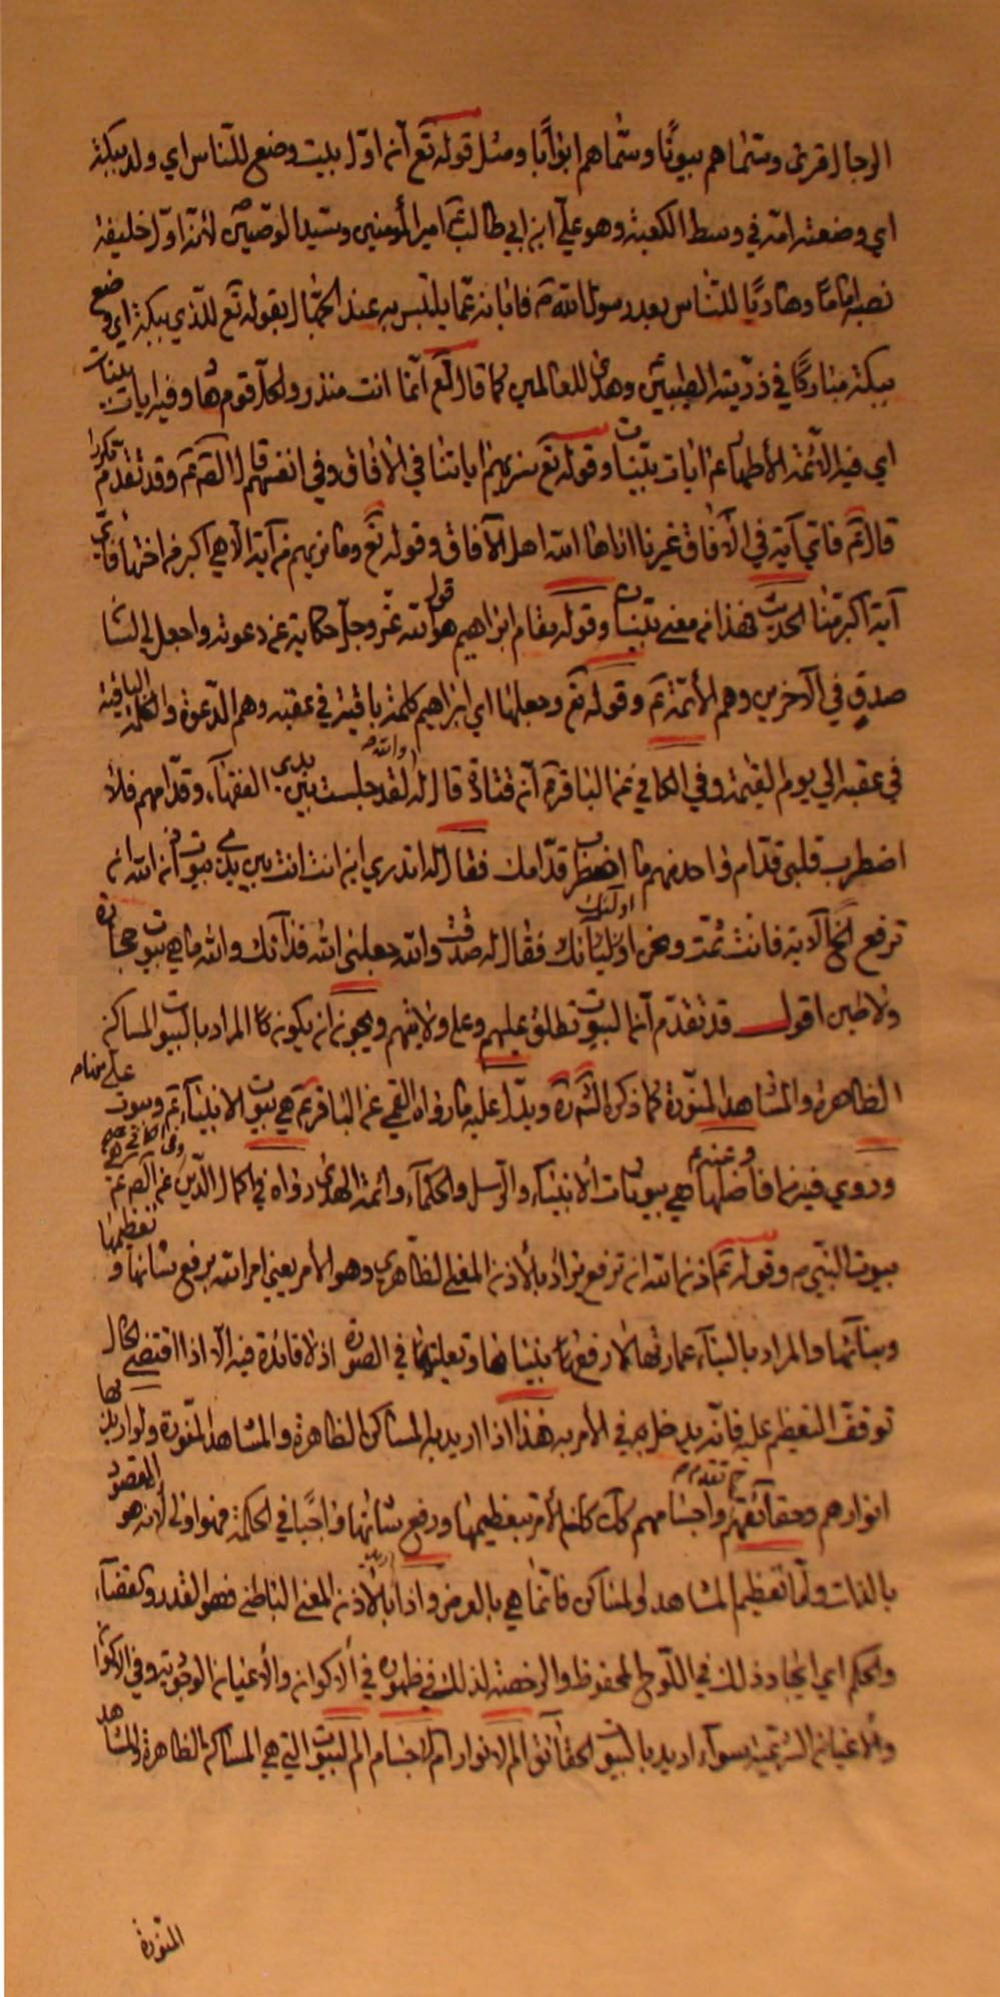 الرجال قرى وسمّاهم بيوتًا وسمّاهم ابوابًا ومثل قوله تع انّ اوّل بيت وضع للنّاس اي ولد ببكة
اي وضعته امّه في وسط الكعبة وهو عليّ ابن ابي طالب ع امير المؤمنين وسيد الوصيّين لانّه اوّل خليفة
نصبه اماما وهاديًا للنّاس بعد رسول الله ص فابانه عمّا يلتبس به عند الجهّال بقوله تع للّذي ببكة اي وضع
ببكة مباركًا في ذرّيته الطيّبين وهدى للعالمين كما قال تع انّما انت منذر ولكلّ قوم هاد وفيه ايات بينات
اي فيه الائمّة الأطهار ع ايات بيّنات وقوله تع سنريهم اياتنا في الافاق وفي انفسهم قال الص ع وقد تقدّم مكررا
قال ع فايّ آية في الآفاق غيرنا اراها الله اهل الآفاق وقوله تع وما نريهم من آية الّا هي اكبر من اختها فايّ
آية اكبر منّا الحديث فهذا من معنى بيّنات وقوله مقام ابراهيم هو قول الله عزّ وجلّ حكاية عن دعوته واجعل لي لسان
صدق في الآخرين وهم الأئمّة ع وقوله تع وجعلها اي ابراهيم كلمة باقية في عقبه وهم الدّعوة والكلمة الباقية
في عقبه الي يوم القيمة وفي الكافي عن الباقر ع انّ قتادة قال له والله لقد جلست بين يدي الفقهاء وقدّامهم فلا
اضطرب قلبي قدّام واحد منهم ما اضطرب قدّامك فقال له اتدري اين انت انت بين يدي بيوت اذن الله ان
ترفع الخ الآية فانت ثمّت ونحن اولئك فقال له صدقت والله جعلني الله فداك والله ما هي بيوت حجارة
ولا طين اقول قد تقدّم انّما البيوت تطلق عليهم وعلى ولايتهم ويجوز ان يكون المراد بالبيوت المساكن
الظاهرة والمشاهد المنوّرة كما ذكره الش ره ويدلّ عليه ما رواه القمي عن الباقر ع هي بيوت الانبياء ع وبيوت علي ع منها
وروي فيه وعنه ع هي بيوتات الأنبياء والرّسل والحكمآء وائمّة الهدى رواه في اكمال الدّين عن الص ع
بيوت النّبي ص وقوله ع اذن الله ان ترفع يراد بالأذن المعنى الظاهري وهو الأمر يعني امر الله برفع شأنها وتعظيمها
وبنآئها والمراد بالبنآء عمارتها لا رفع بنيانها وتعليتها في الصورة اذ لا فائدة فيه الّا اذا اقتضى الحال
توقّف التعظيم عليه فانّه يدخل به في الأمر به هذا اذا اريد به المساكن الظاهرة والمشاهد المنّورة ولو اريد بها
انوارهم وحقآئقهم واجسامهم كما تقدّم كان الأمر بتعظيمها ورفع شأنها واجبًا في الحكمة فهو اولى لأنه هو المقصود
بالذات وامّا تعظيم المشاهد والمساكن فانّما هي بالعرض واذا اريد بالأذن المعنى الباطني فهو القدر والقضآء
والحكم اي ايجاد ذلك في اللّوح المحفوظ والرخصة لذلك في ظهوره في الاكوان والأعيان الوجوديّة وفي الاكوان
والأعيان الشرعية سوآء اريد بالبيوت الحقآئق ام الانوار ام الاجسام ام البيوت التي هي المساكن الظاهرة والمشاهد
المنوّرة